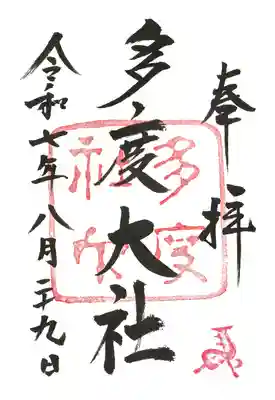 奉拝
多度大社
令和七年八月二十九日
多度
大社